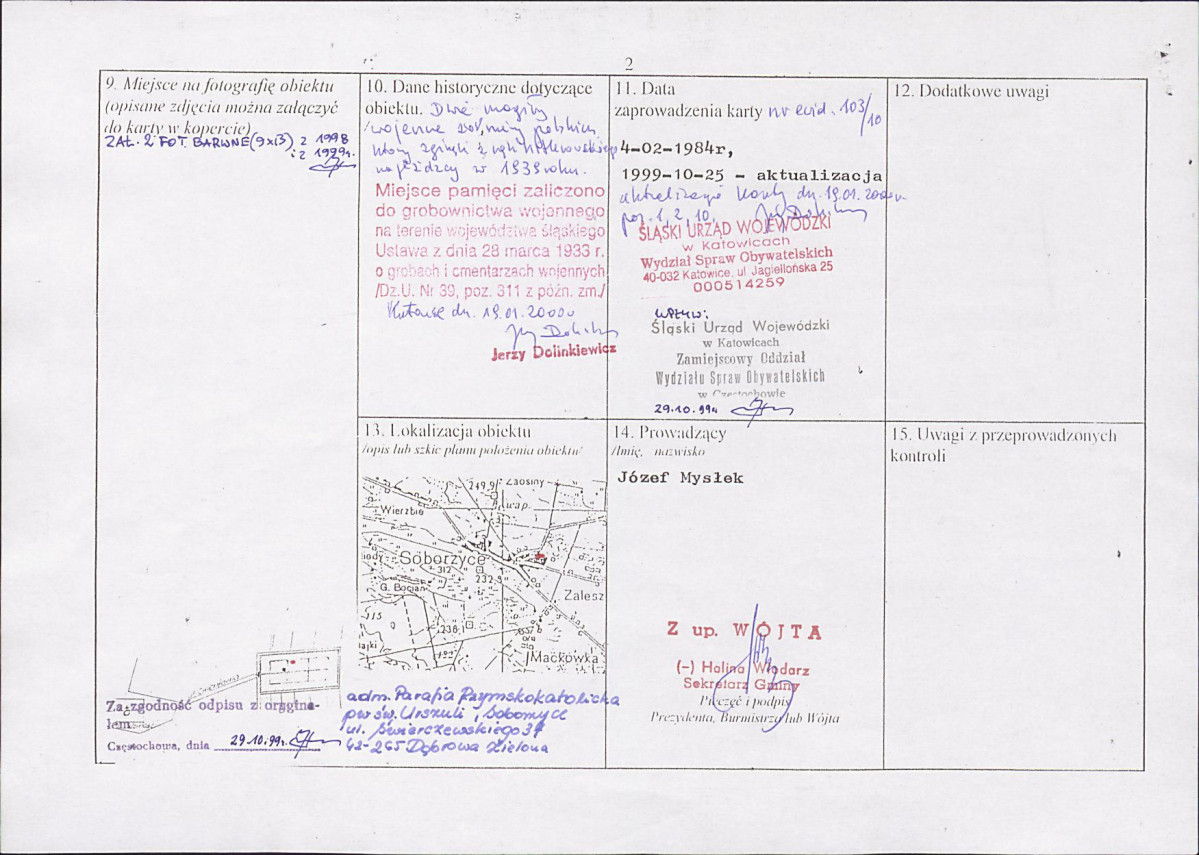 2
9. Miejsce na fotografię obiektu
(opisane zdjęcia można załączyć
do karty w kopercie)
ZAŁ. 2 FOT. BARWNE (9x13) z 1998
i z 1999r.
10. Dane historyczne dotyczące
obiektu. Dwie mogiły
wojenne żołnierzy polskich
którzy zginęli z rąk hitlerowskiego
najeźdźcy w 1939 roku.
Miejsce pamięci zaliczono
do grobownictwa wojennego
na terenie województwa śląskiego
Ustawa z dnia 28 marca 1933 r.
o grobach i cmentarzach wojennych
/Dz.U. Nr 39, poz. 311 z późn. zm./
dn. 19.01.2000
Jerzy Dolinkiewicz
11. Data
zaprowadzenia karty nr ewid. 103/10
4-02-1984r,
1999-10-25 - aktualizacja
aktualizacja karty dn. 19.01.2000r
poz. 1, 2, 10.
ŚLĄSKI URZĄD WOJEWÓDZKI
w Katowicach
Wydział Spraw Obywatelskich
40-032 Katowice, ul. Jagiellońska 25
000514259
WPŁYW:
Śląski Urząd Wojewódzki
w Katowicach
Zamiejscowy Oddział
Wydziału Spraw Obywatelskich
w Częstochowie
29.10.99r
12. Dodatkowe uwagi
13. Lokalizacja obiektu
/opis lub szkic planu położenia obiektu/
249,9
Zaosiny
wap.
Wierzbie
Soborzyce
312
232,5
G. Bocian
Zalesz
315
238,1
Maćkówka
adm. Parafia Rzymskokatolicka
pw św. Urszuli, Soborzyce
ul. Świerczewskiego 37
42-265 Dąbrowa Zielona
Za zgodność odpisu z orygina-
łem
Częstochowa, dnia 29.10.99r.
14. Prowadzący
/Imię, nazwisko
Józef Mysłek
Z up. WÓJTA
(-) Halina Włodarz
Sekretarz Gminy
Pieczęć i podpis
Prezydenta, Burmistrza lub Wójta
15. Uwagi z przeprowadzonych
kontroli